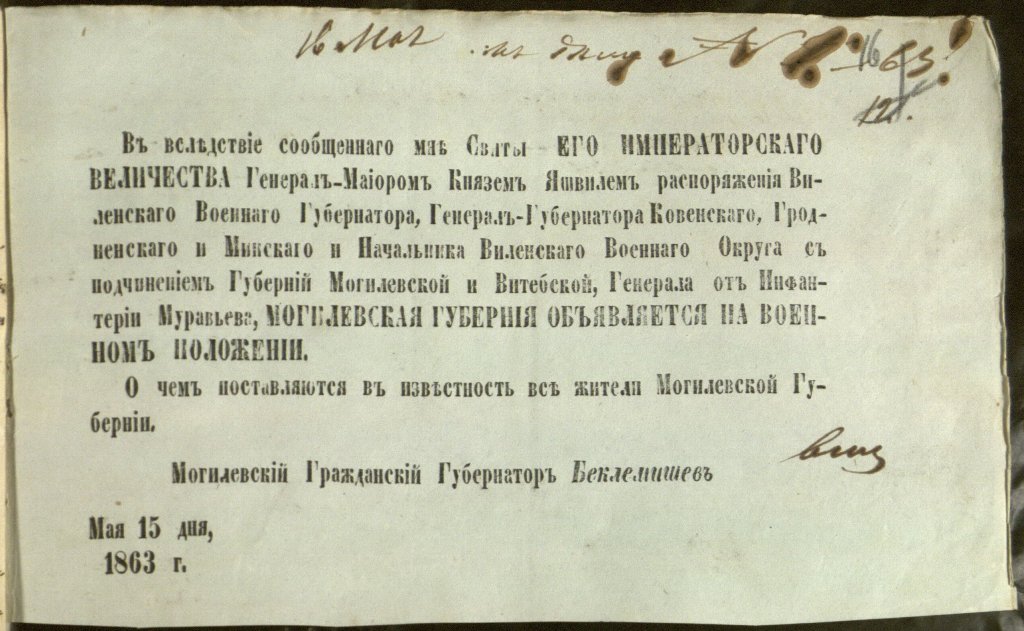 16 Мая
16
63
12.
Въ вслѣдствіе сообщеннаго мнѣ Свиты ЕГО ИМПЕРАТОРСКАГО
ВЕЛИЧЕСТВА Генералъ-Маіоромъ Княземъ Яшвилемъ распоряженія Ви-
ленскаго Военнаго Губернатора, Генералъ-Губернатора Ковенскаго, Грод-
ненскаго и Минскаго и Начальника Виленскаго Военнаго Округа съ
подчиненіемъ Губерній Могилевской и Витебской, Генерала отъ Инфан-
теріи Муравьева, МОГИЛЕВСКАЯ ГУБЕРНІЯ ОБЪЯВЛЯЕТСЯ НА ВОЕН-
НОМЪ ПОЛОЖЕНІИ.
О чемъ поставляются въ извѣстность всѣ жители Могилевской Гу-
берніи.
Могилевскій Гражданскій Губернаторъ Беклемишевъ
Мая 15 дня,
1863 г.